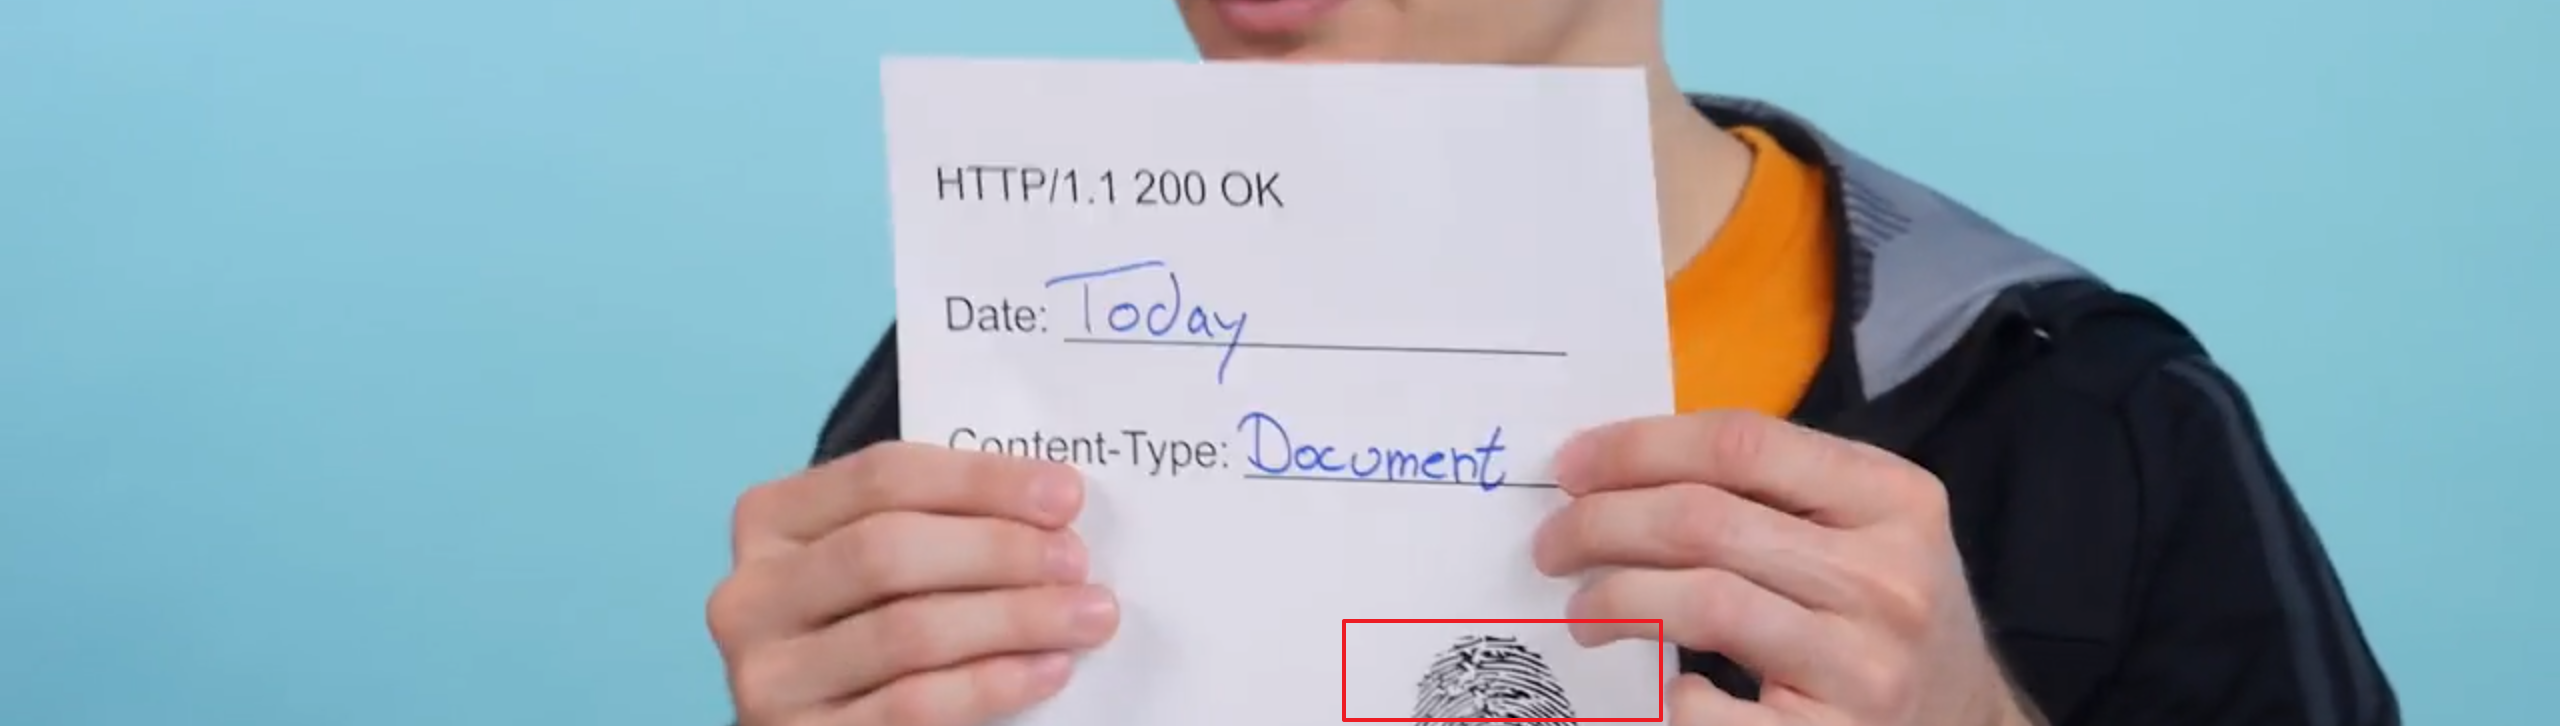 HTTP/1.1 200 OK
Date: Today
Content-Type: Document